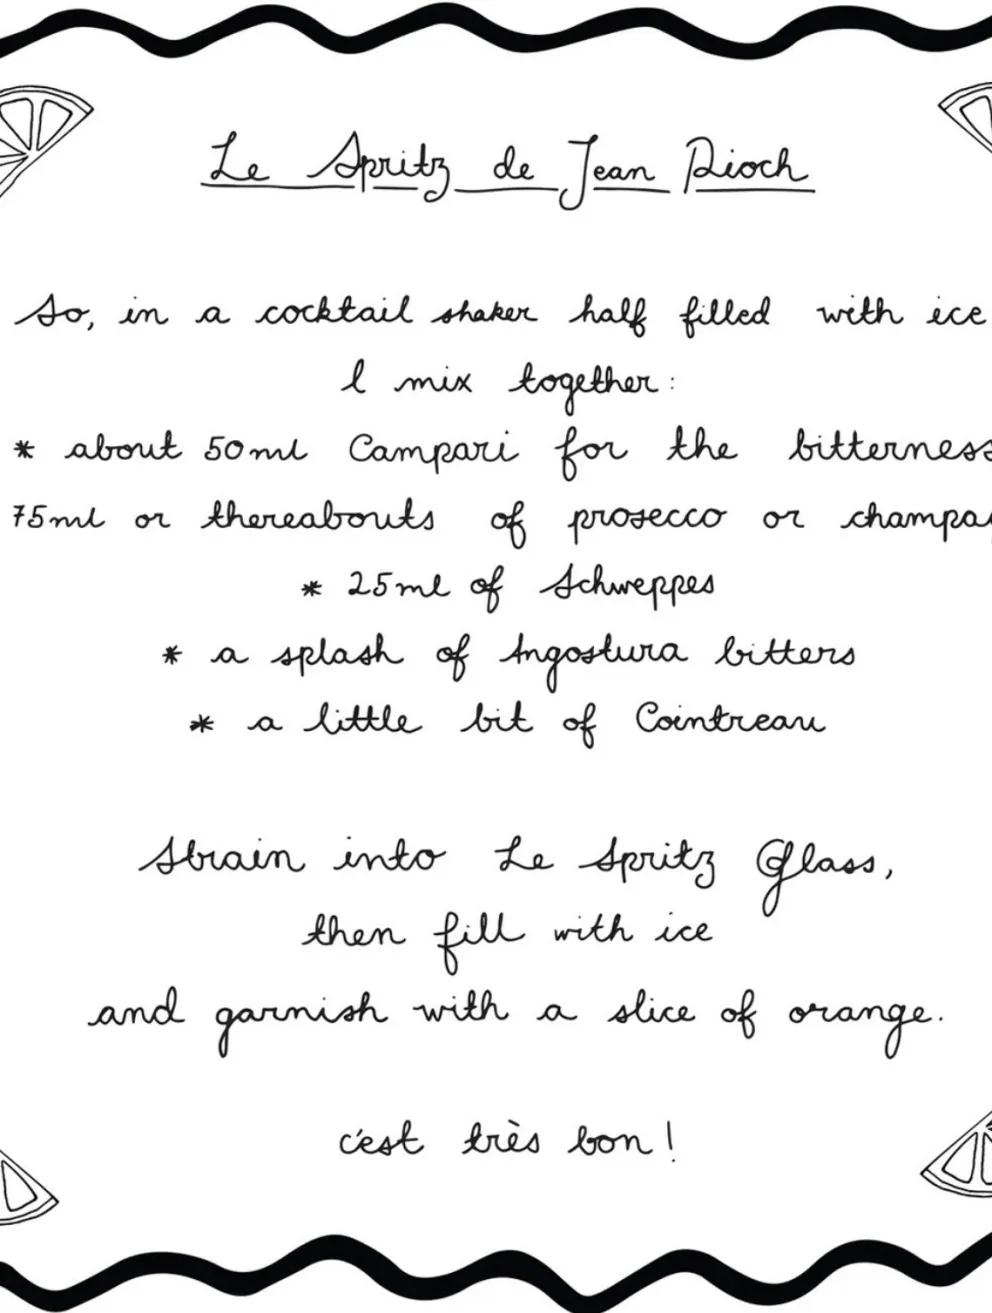 Le Spritz de Jean Rioch
So, in a cocktail shaker half filled with ice
I mix together:
* about 50ml Campari for the bitterness
75ml or thereabouts of prosecco or champa
* 25ml of Schweppes
* a splash of Angostura bitters
* a little bit of Cointreau
Strain into Le Spritz Glass,
then fill with ice
and garnish with a slice of orange.
c'est très bon!